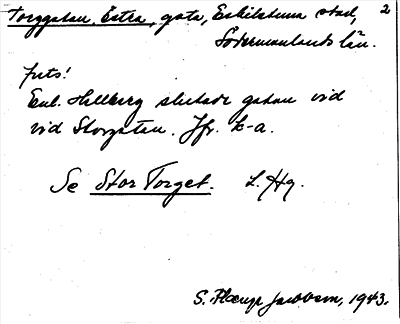 Torggatan, Östra, gata, Eskilstuna stad, 2
Södermanlands län.
forts!
Enl. Hellberg slutade gatan vid
vid Storgatan. Jfr. k-a.
Se Stor Torget. L. Hg.
S. Jacobson, 1943.